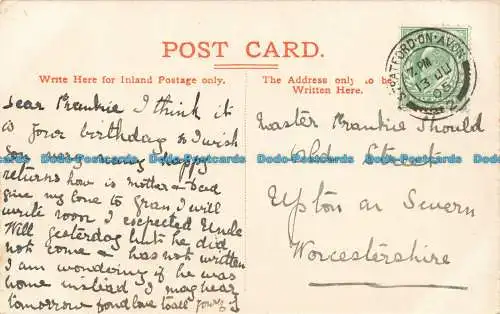 POST CARD.
Write Here for Inland Postage only.
The Address only to be
Written Here.
Dear Frankie I think it
is your birthday so I wish
you very many happy
returns how is mother & Dad
give my love to Gran I will
write soon I expected Uncle
Will yesterday but he did
not come & has not written
I am wondering if he was
home instead I may hear
tomorrow fond love to all
Master Frankie Should
Old Street
Upton on Severn
Worcestershire
ATFORD-ON-AVON
7. PM
13 JU
05